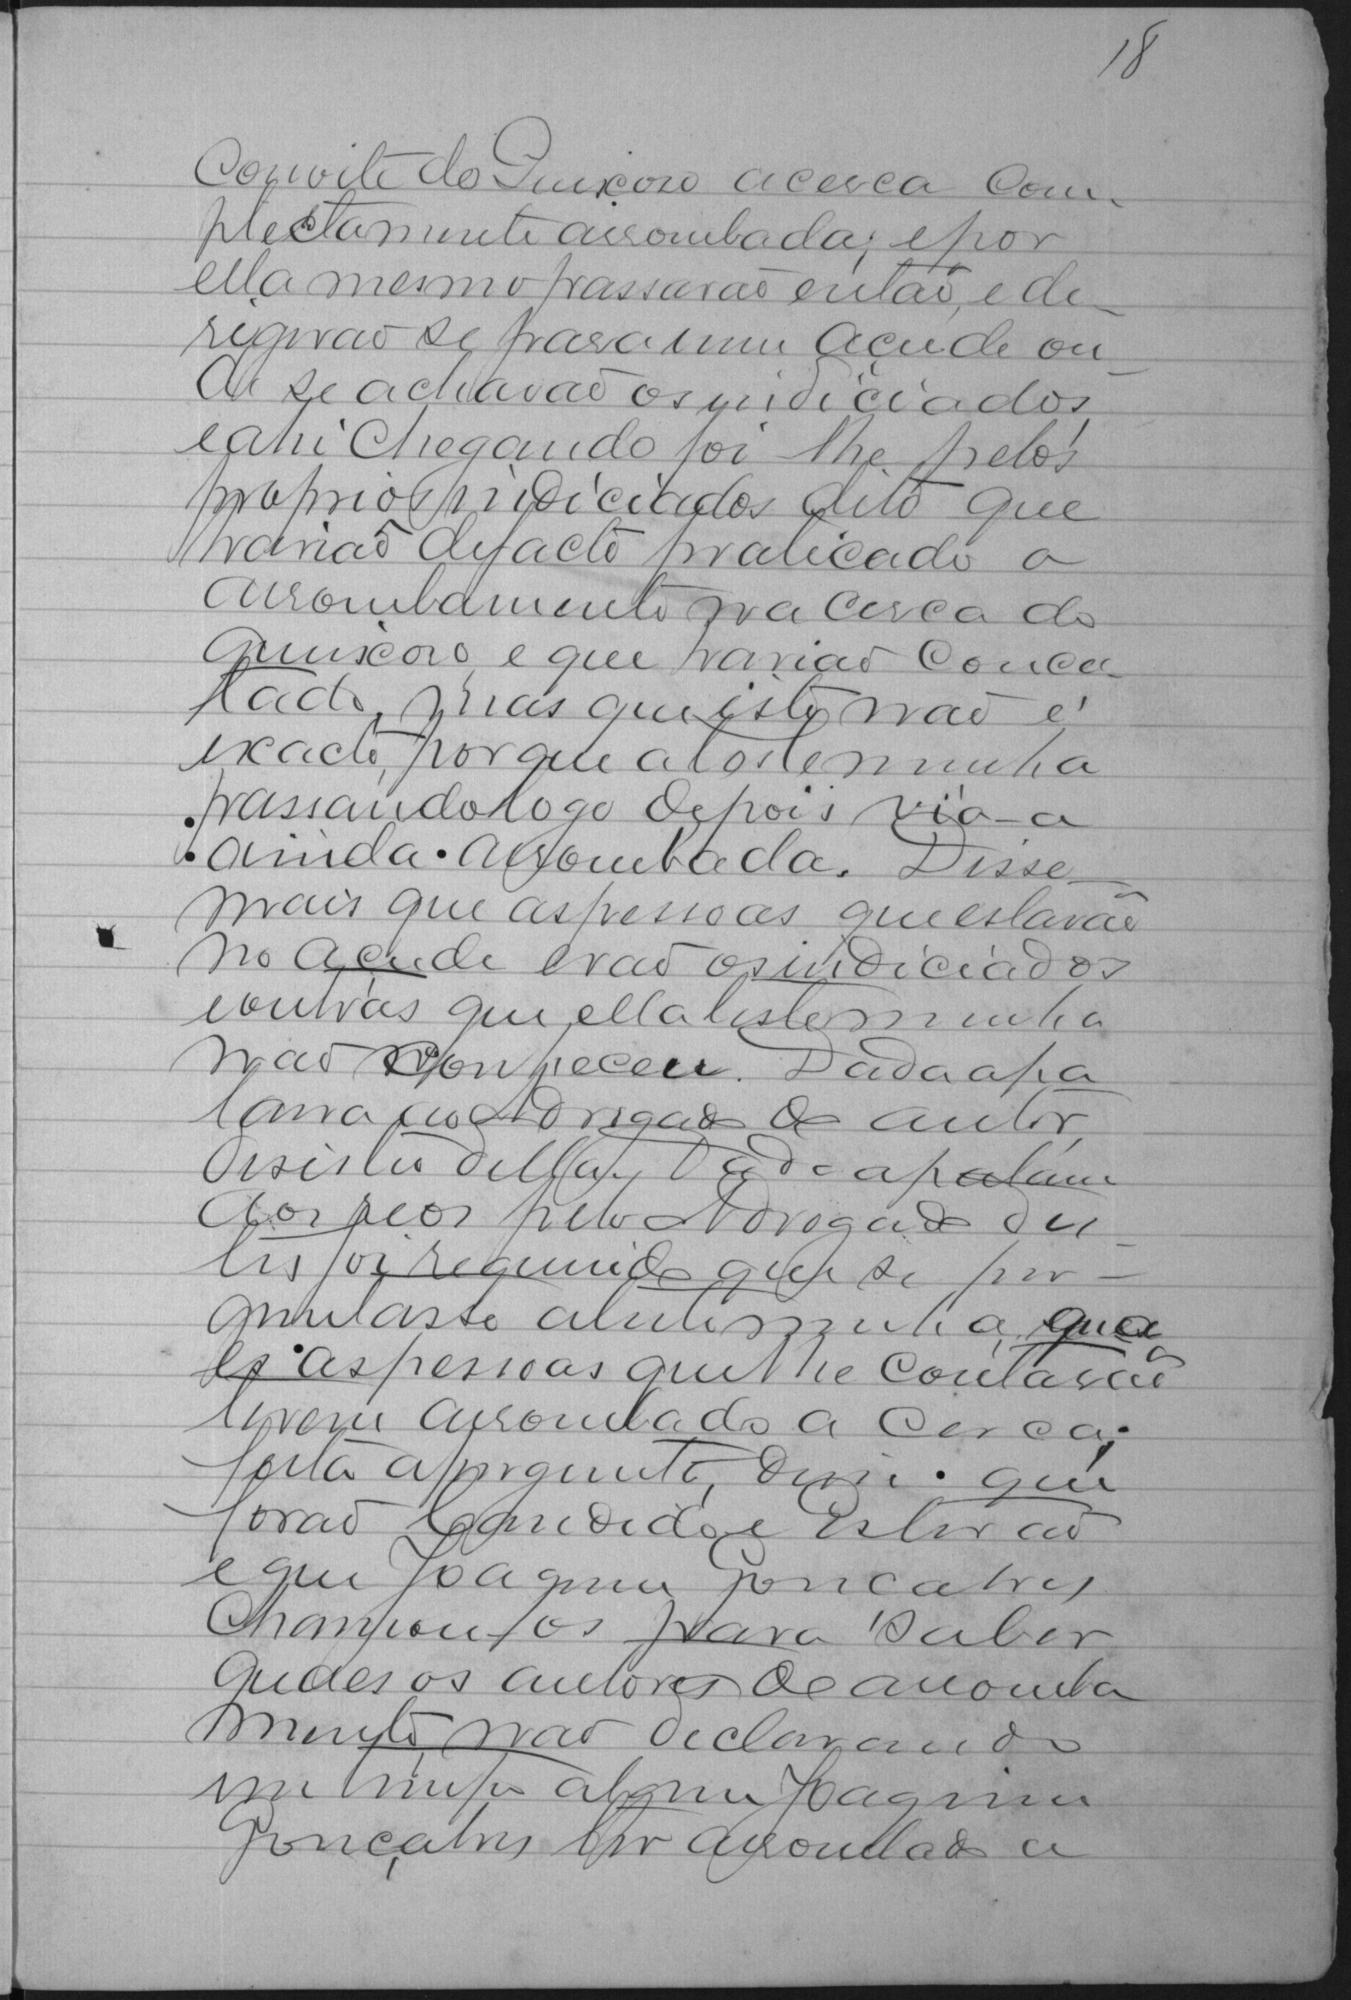 18
Convite do Quixoso acerca com
plectamente arrombada; e por
ella mesmo passarão então, e de
rigirão se para um açude on
de se achavão os indiciados,
e ahi chegando foi lhe pelos
proprios indiciados dito que
havião de facto praticado o
arrombamento na cerca do
Quixoso, e que havião conce
tado, mas que isto não é
exacto, porque a testemunha
passando logo depois vio-a
ainda arrombada. Disse
mais que as pessoas que estavão
no açude erão os indiciados
e outras que ella testemunha
não conheceu. Dada a pa
lavra ao Advogado do autor,
desistio della. Dada a palavra
aos reos pelo Advogado des
tes foi requerido que se per
guntasse a testemunha, qua
es as pessoas que lhe contarão
terem arrombado a cerca;
feita a pergunta, disse que
forão Candido e Estevão
e que Joaquim Gonçalves
chamou-os para saber
quaes os autores do arromba
mento, não declarando
em tempo algum Joaquim
Gonçalves ter arrombado a